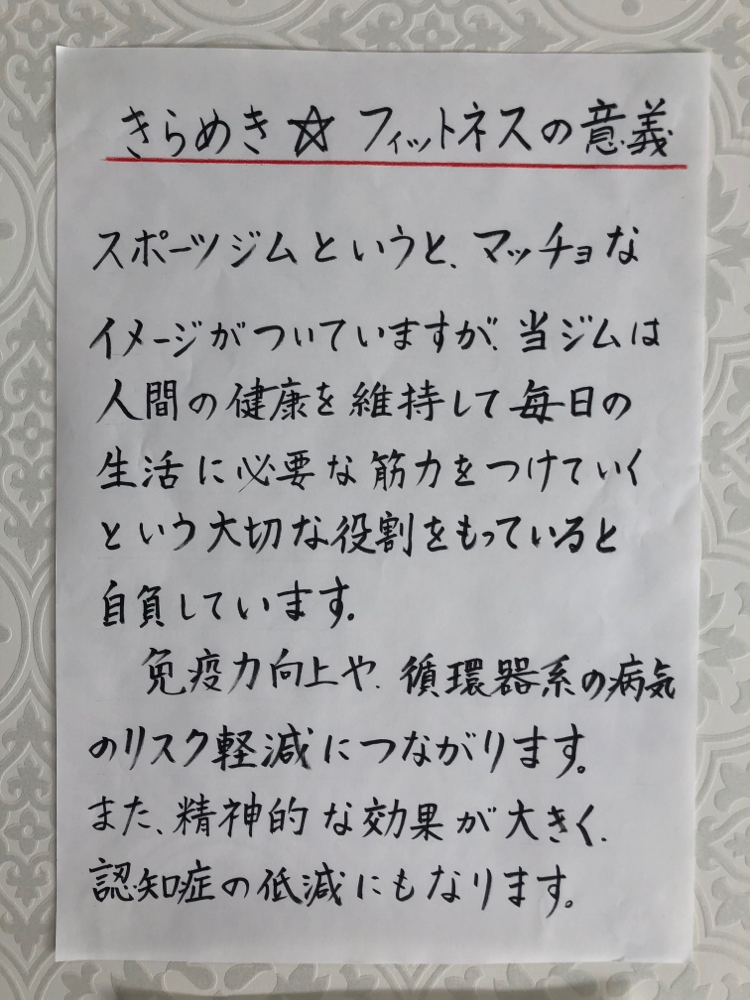 きらめき☆フィットネスの意義
スポーツジムというと、マッチョな
イメージがついていますが、当ジムは
人間の健康を維持して毎日の
生活に必要な筋力をつけていく
という大切な役割をもっていると
自負しています。
免疫力向上や、循環器系の病気
のリスク軽減につながります。
また、精神的な効果が大きく、
認知症の低減にもなります。